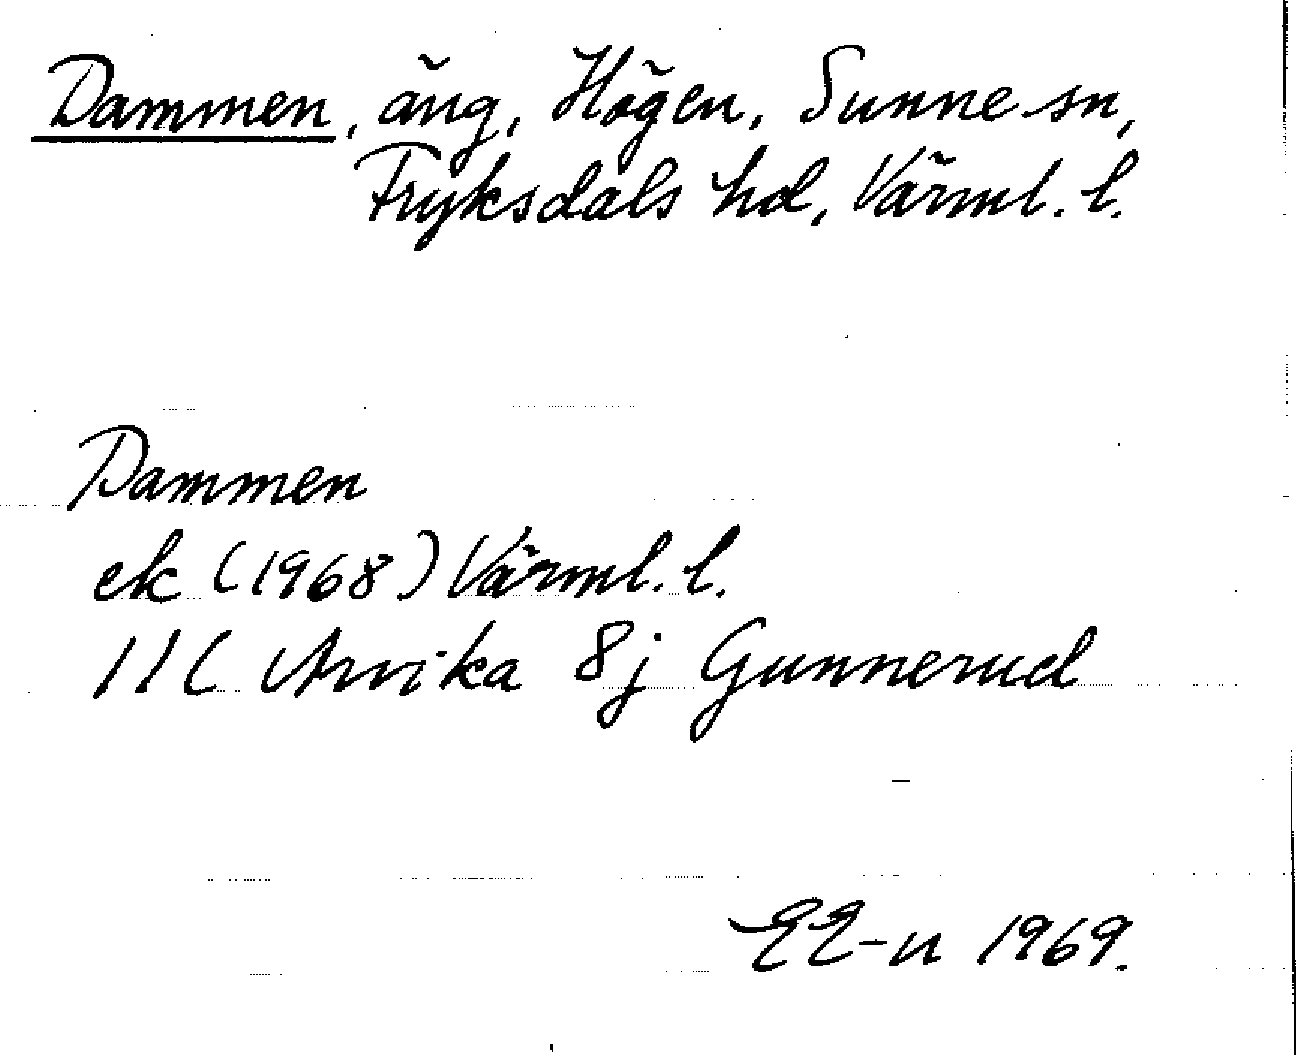 Dammen, äng, Högen, Sunne sn,
Fryksdals hd, Värml. l.
Dammen
ek (1968) Värml. l.
11C Arvika 8j Gunnerud
EE-n 1969.